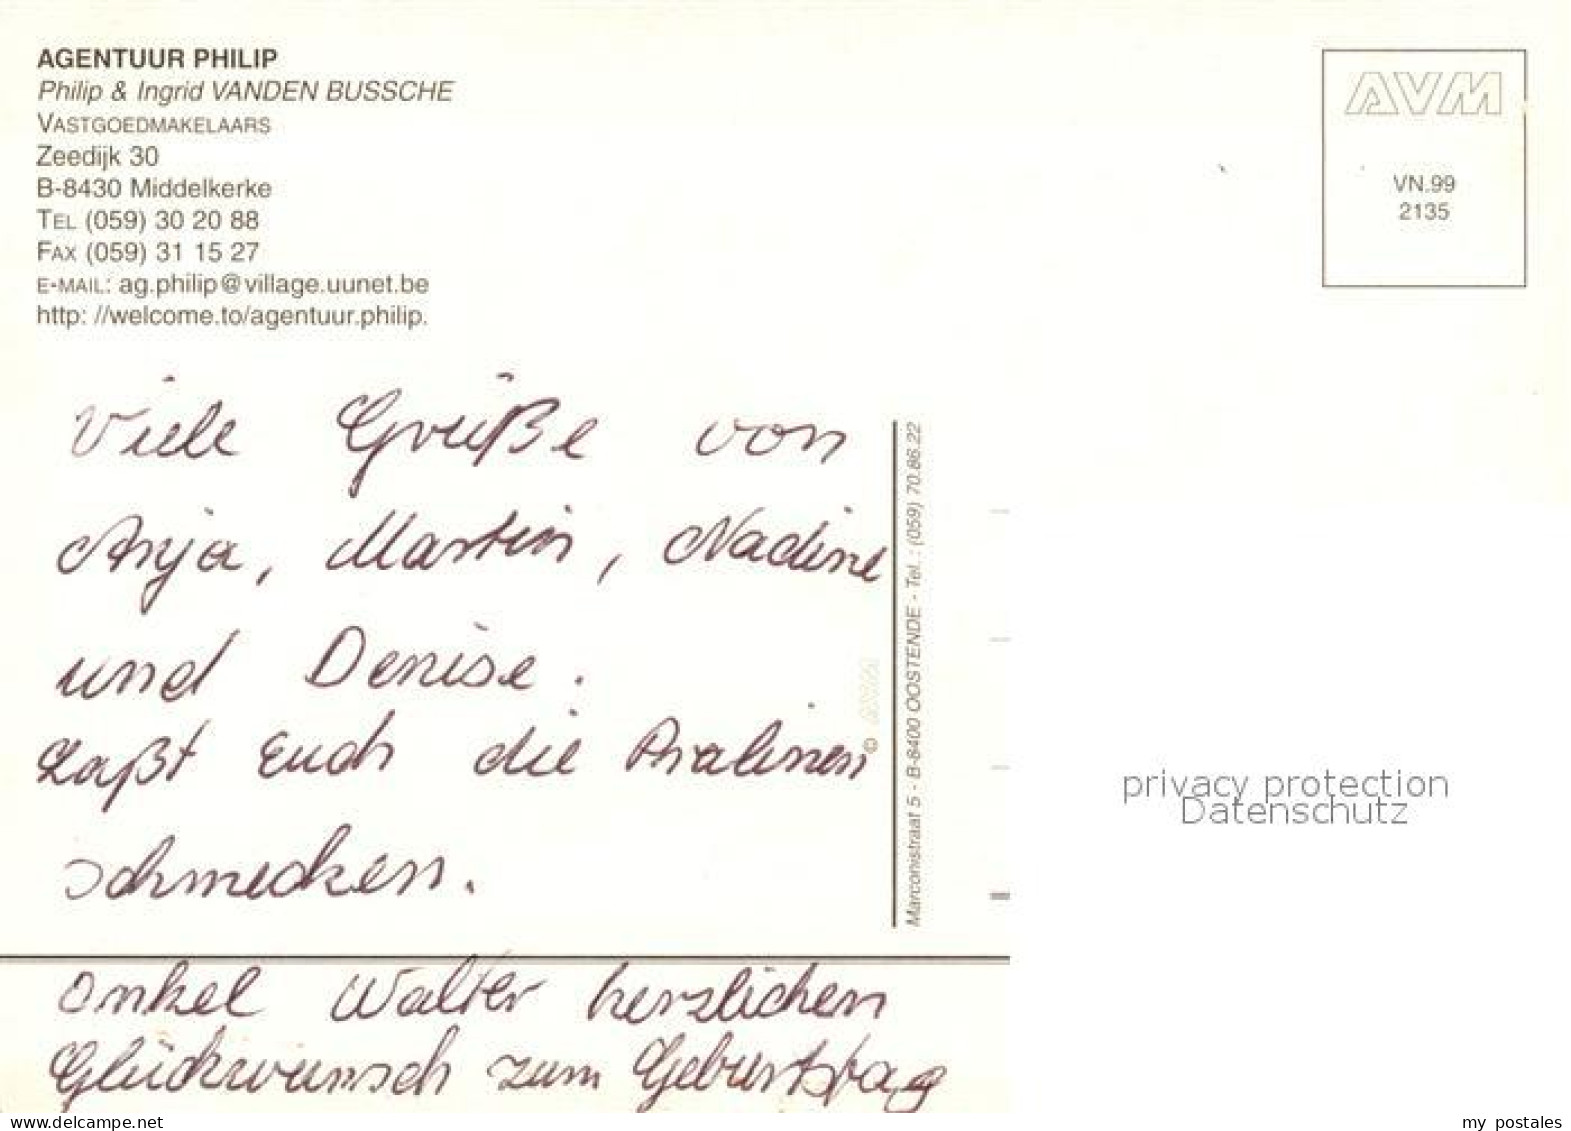 AGENTUUR PHILIP
Philip & Ingrid VANDEN BUSSCHE
VASTGOEDMAKELAARS
Zeedijk 30
B-8430 Middelkerke
TEL (059) 30 20 88
FAX (059) 31 15 27
E-MAIL: ag.philip@village.uunet.be
http: //welcome.to/agentuur.philip.
AVM
VN.99
2135
Viele Grüße von
Anja, Martin, Nadine
und Denise.
Laßt Euch die Pralinen
schmecken.
Onkel Walter herzlichen
Glückwunsch zum Geburtstag
© AVM
Marconistraat 5 - B-8400 OOSTENDE - Tel. : (059) 70.86.22
privacy protection
Datenschutz
www.delcampe.net
my_postales